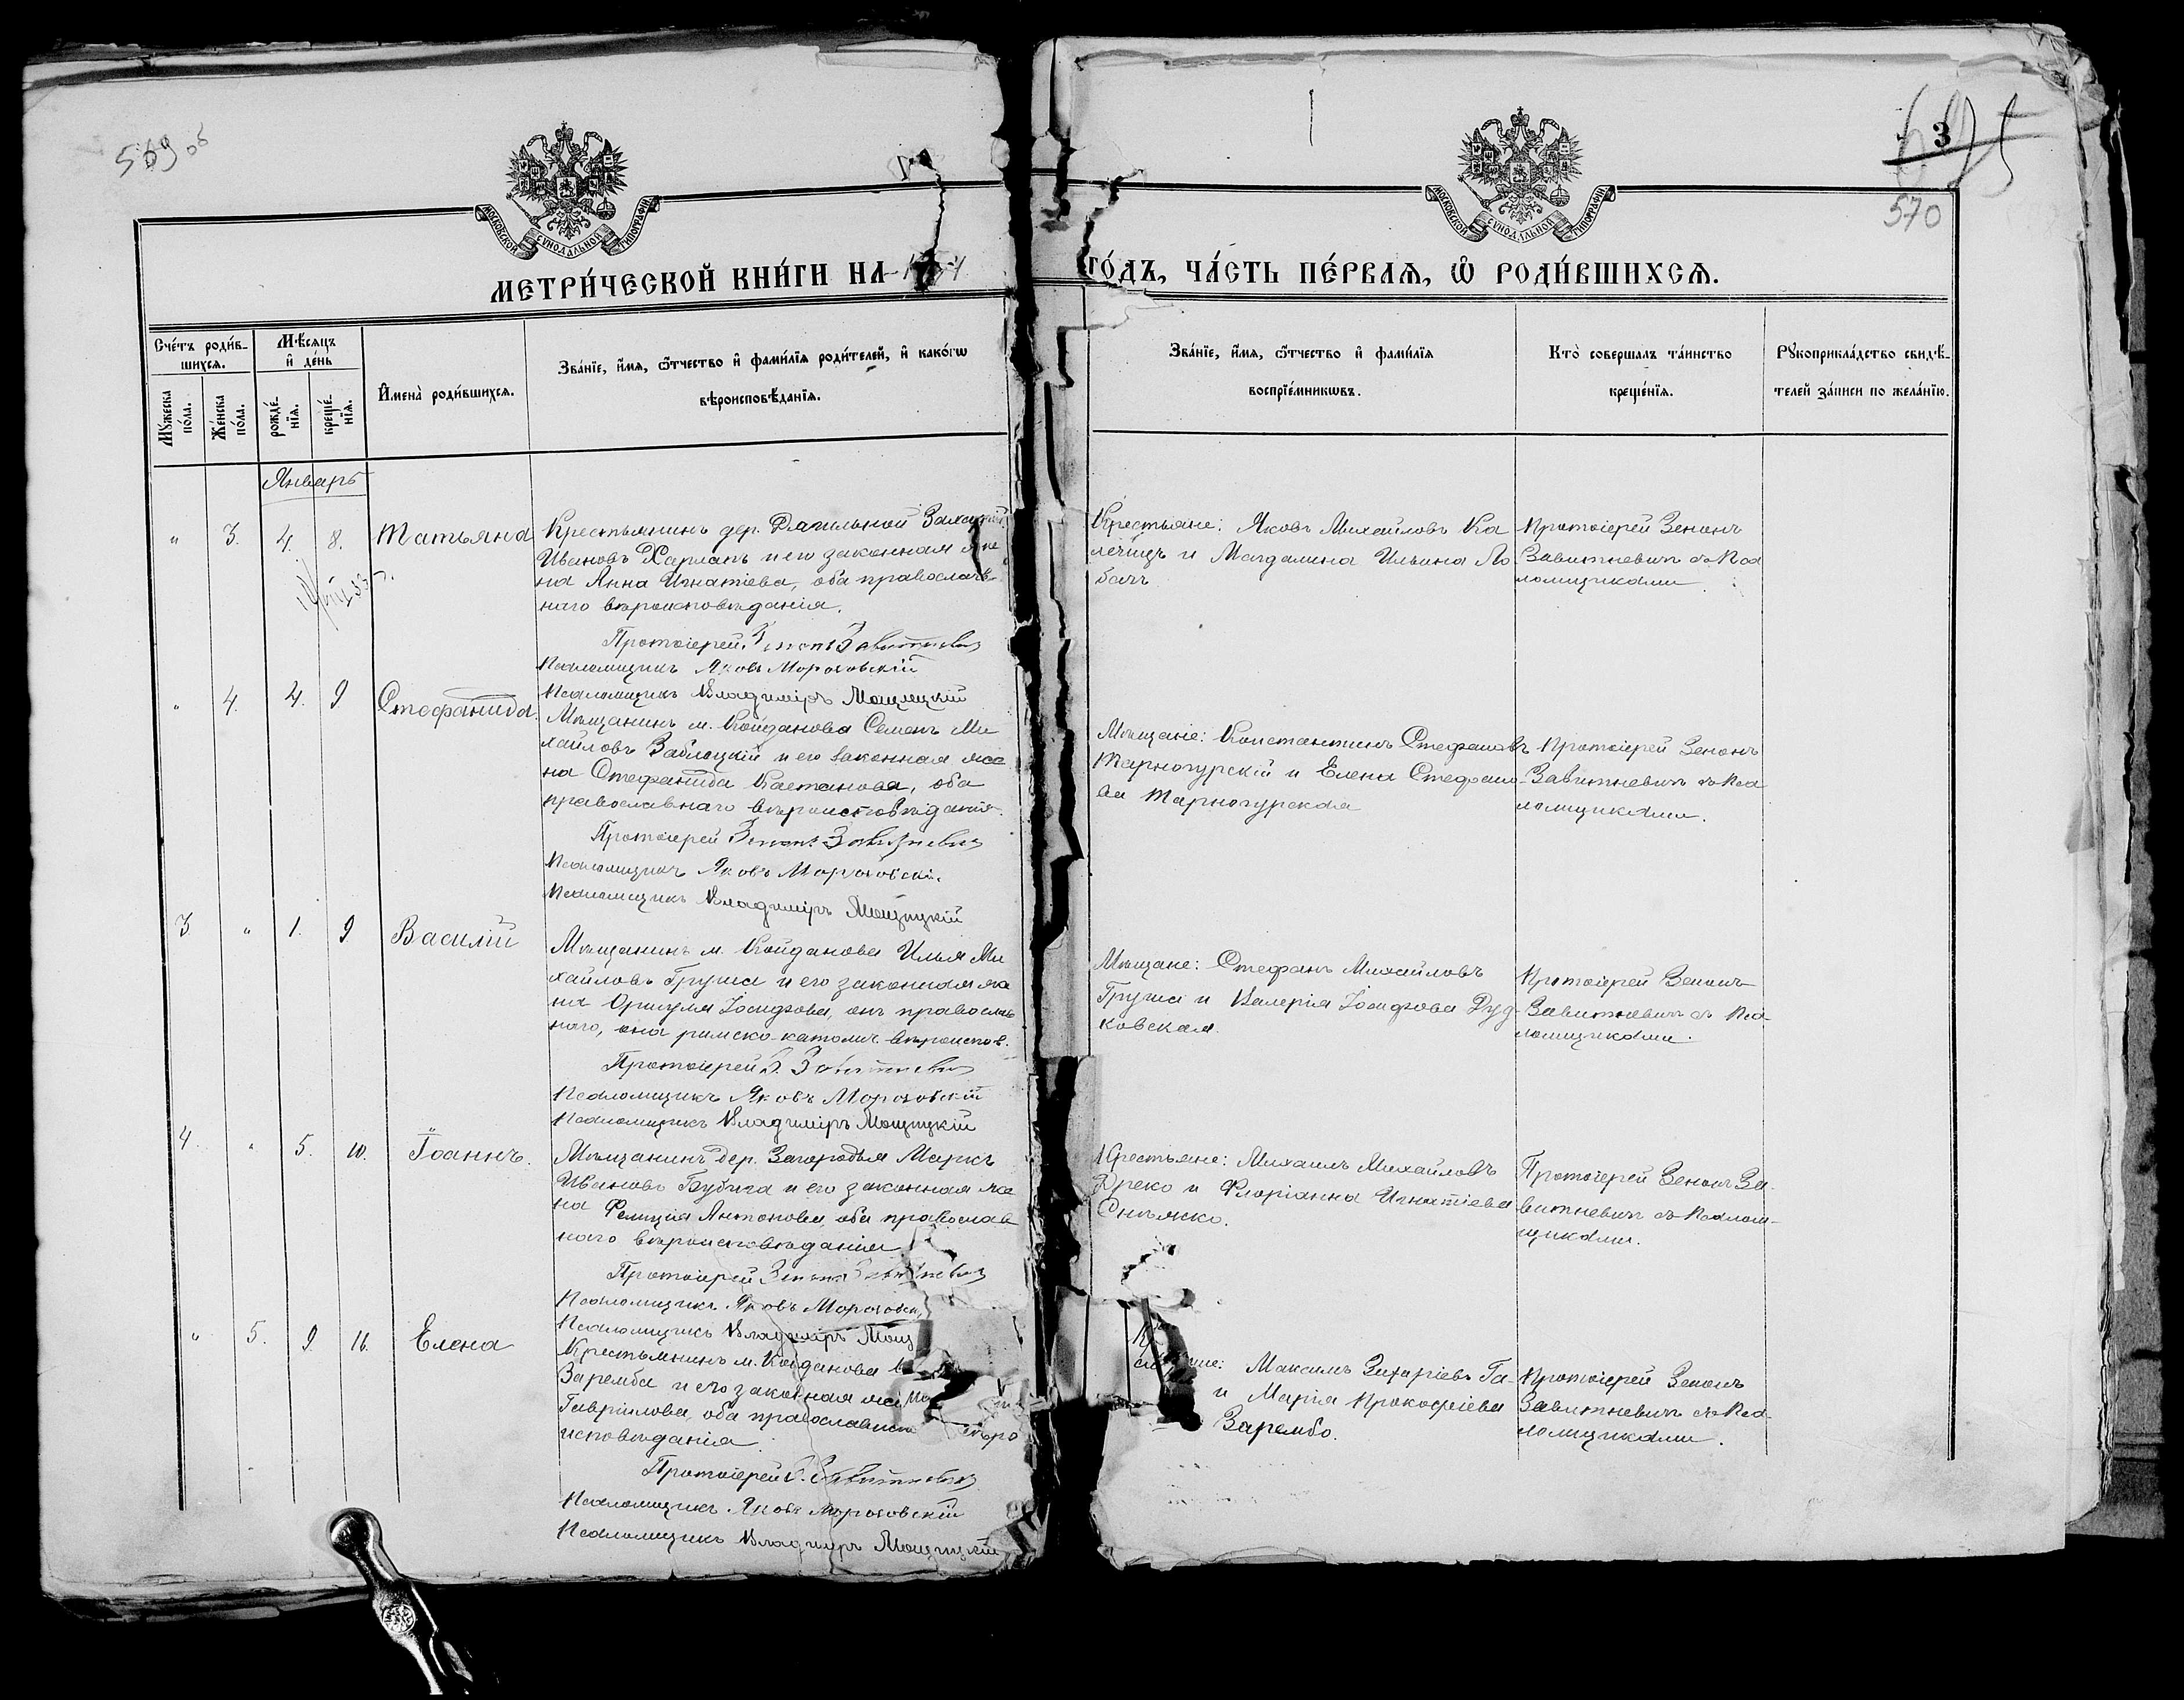 569 об
3
570
МОСКОВСКОЙ СУНОДАЛЬНОЙ ТИПОГРАФІИ
МОСКОВСКОЙ СУНОДАЛЬНОЙ ТИПОГРАФІИ
МЕТРИ́ЧЕСКОЙ КНИ́ГИ НА ГО́ДЪ, ЧА́СТЬ ПЕ́РВАѦ, Ѡ РОДИ́ВШИХСѦ.
Сче́тъ роди́в-
шихсѧ.
Мꙋ́жеска по́ла.
Же́нска по́ла.
Мѣ́сѧцъ
и҆ де́нь
рожде́-
нїѧ.
креще́-
нїѧ.
И҆мена̀ роди́вшихсѧ.
Зва́нїе, и҆́мѧ, ѻ҆́тчество и҆ фами́лїѧ роди́телей, и҆ како́гѡ
вѣроисповѣ́данїѧ.
Зва́нїе, и҆́мѧ, ѻ҆́тчество и҆ фами́лїѧ
воспрїе́мникѡвъ.
Кто̀ соверша́лъ та́инство
креще́нїѧ.
Рꙋкоприкла́дство свидѣ́-
телей за́писи по жела́нїю.
Январь
" 3. 4. 8. Татьяна
Крестьянинъ дер.
Ивановъ Харланъ и его законная же
на Анна Игнатіева, оба православ-
наго вѣроисповѣданія.
Протоіерей Зенонъ Завитневичъ
Псаломщикъ Яковъ Мороховскій
Псаломщикъ Владиміръ Мощицкій
Крестьяне: Яковъ Михайловъ Ка
лечицъ и Магдалина Ильина Ло
бачъ
Протоіерей Зенонъ
Завитневичъ съ Пса
ломщиками.
" 4. 4. 9 Стефанида.
Мѣщанинъ м. Койданова Семенъ Ми
хайловъ Заблоцкій и его законная же
на Стефанида Каетанова, оба
православнаго вѣроисповѣданія.
Протоіерей Зенонъ Завитневичъ
Псаломщикъ Яковъ Мороховскій.
Псаломщикъ Владиміръ Мощицкій
Мѣщане: Константинъ Стефановъ
Тарногурскій и Елена Стефано-
ва Тарногурская
Протоіерей Зенонъ
Завитневичъ съ Пса
ломщиками.
3 " 1. 9 Василій
Мѣщанинъ м. Койданова Илья Ми
хайловъ Груша и его законная же
на Іосифова, онъ православ
наго, она римско-католич. вѣроиспов.
Протоіерей З. Завитневичъ
Псаломщикъ Яковъ Мороховскій
Псаломщикъ Владиміръ Мощицкій
Мѣщане: Стефанъ Михайловъ
Груша и Валерія Іосифова Дуд-
ковская.
Протоіерей Зенонъ
Завитневичъ съ Пса-
ломщиками.
4. " 5. 10. Іоаннъ.
Мѣщанинъ дер. Загородья Маркъ
Ивановъ и его законная же
на Фелиція Антонова, оба православ
наго вѣроисповѣданія
Протоіерей Зенонъ Завитневичъ
Псаломщикъ Яковъ Мороховск
Псаломщикъ Владиміръ Мощ
Крестьяне: Михаилъ Михайловъ
Дреко и Флоріанна Игнатіева
Снѣжко.
Протоіерей Зенонъ За-
витневичъ съ Псалом-
щиками.
" 5. 9. 16. Елена
Крестьянинъ м. Койданова
Заремба и его законная же
Гаврилова, оба православн вѣро
исповѣданія.
Протоіерей З. Завитневичъ
Псаломщикъ Яковъ Мороховскій
Псаломщикъ Владиміръ Мощицкій
Максимъ Захаріевъ Га-
и Марія Прокофіева
Зарембо.
Протоіерей Зенонъ
Завитневичъ съ Пса-
ломщиками.